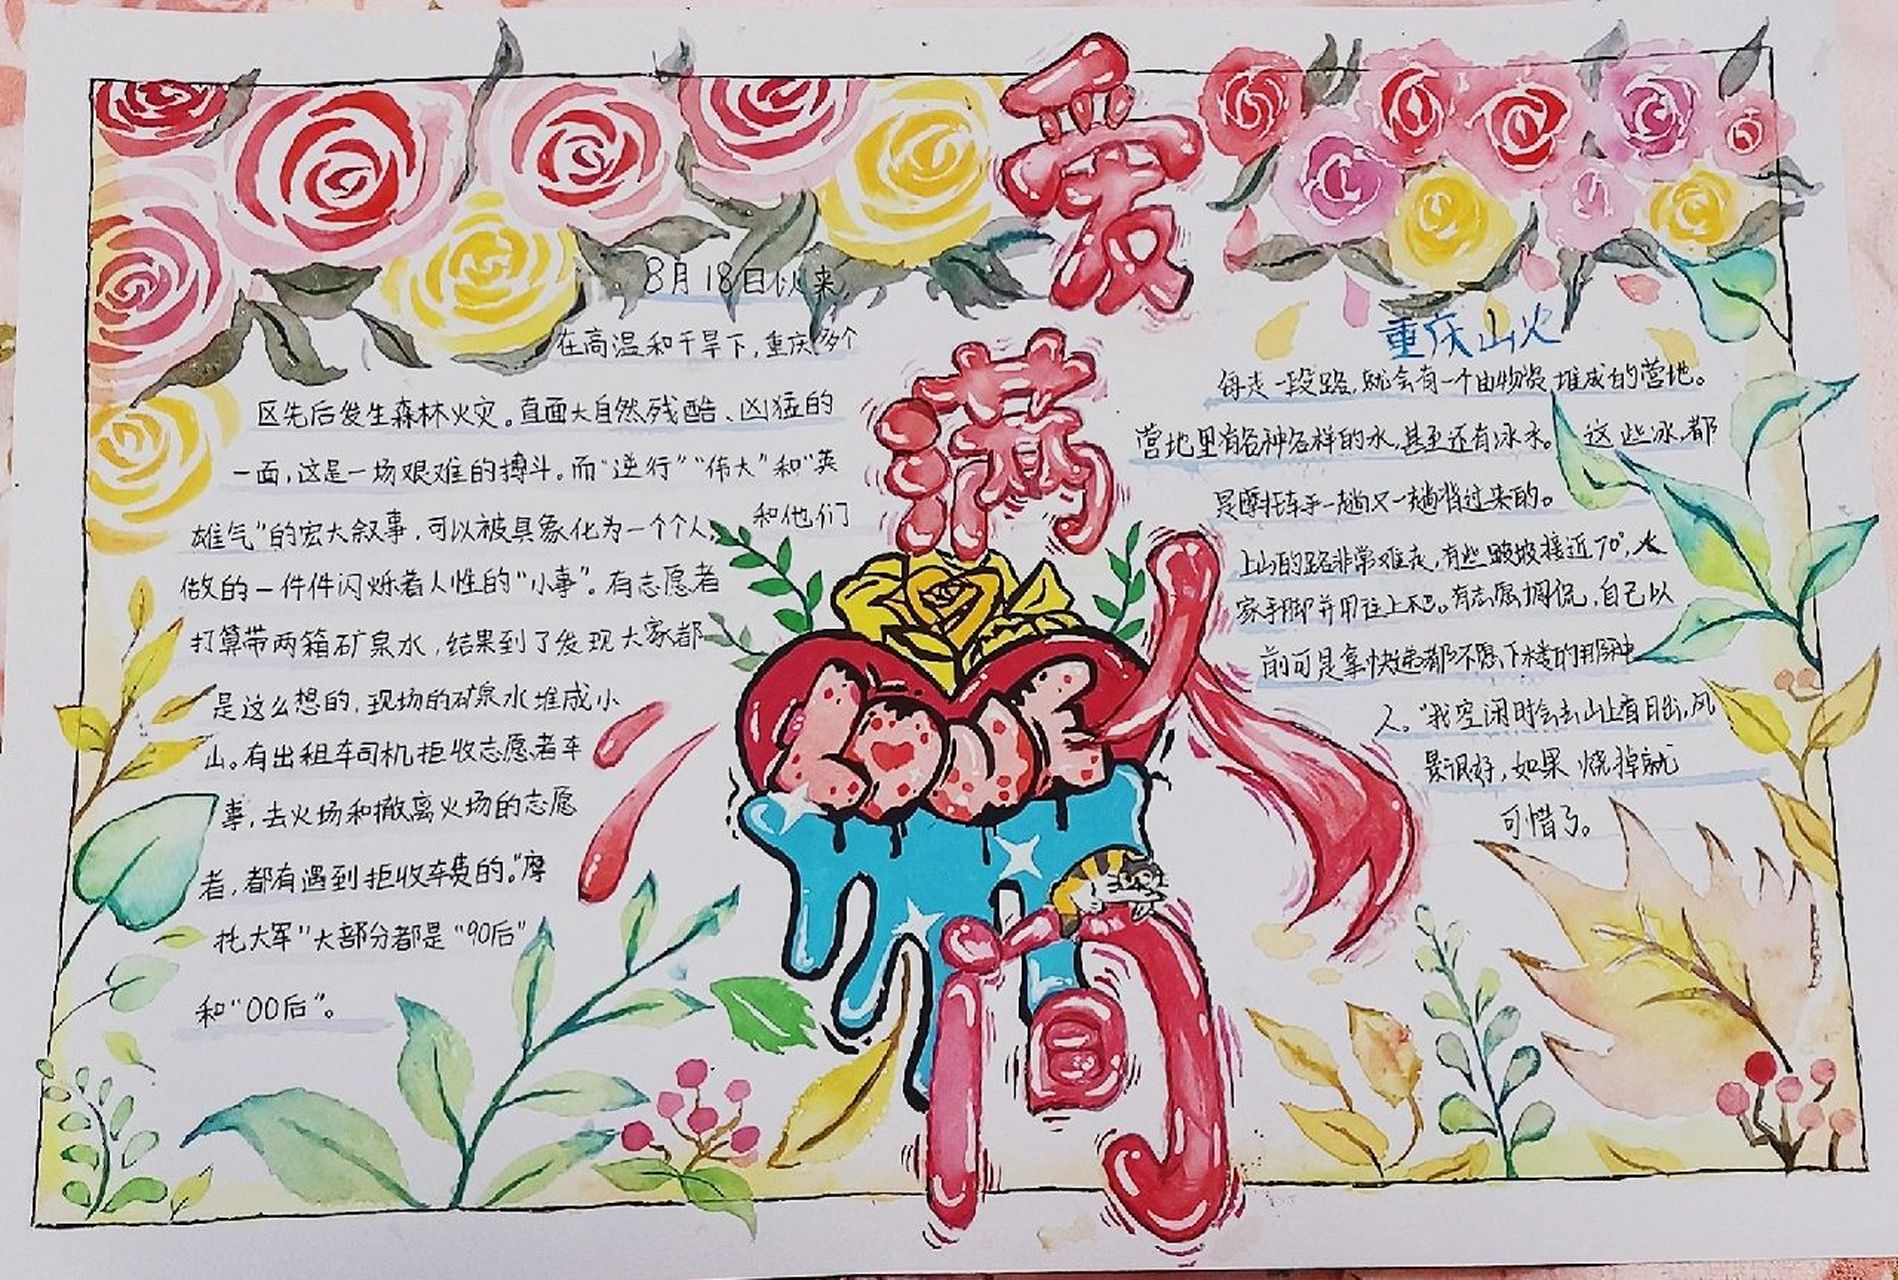 爱
满
人
间
LOVE
8月18日以来
在高温和干旱下，重庆多个
区先后发生森林火灾。直面大自然残酷、凶猛的
一面，这是一场艰难的搏斗。而“逆行”“伟大”和“英
雄气”的宏大叙事，可以被具象化为一个个人，和他们
做的一件件闪烁着人性的“小事”。有志愿者
打算带两箱矿泉水，结果到了发现大家都
是这么想的，现场的矿泉水堆成小
山。有出租车司机拒收志愿者车
事，去火场和撤离火场的志愿
者，都有遇到拒收车费的。“摩
托大军”大部分都是“90后”
和“00后”。
重庆山火
每走一段路，就会有一个由物资堆成的营地。
营地里有各种各样的水，甚至还有冰水。这些冰，都
是摩托车手一趟又一趟背过来的。
上山的路非常难走，有些陡坡接近70°，大
家手脚并用往上爬。有志愿调侃，自己以
前可是拿快递都不愿下楼的那种
人。“我空闲时会去山上看日出，风
景很好，如果烧掉就
可惜了。